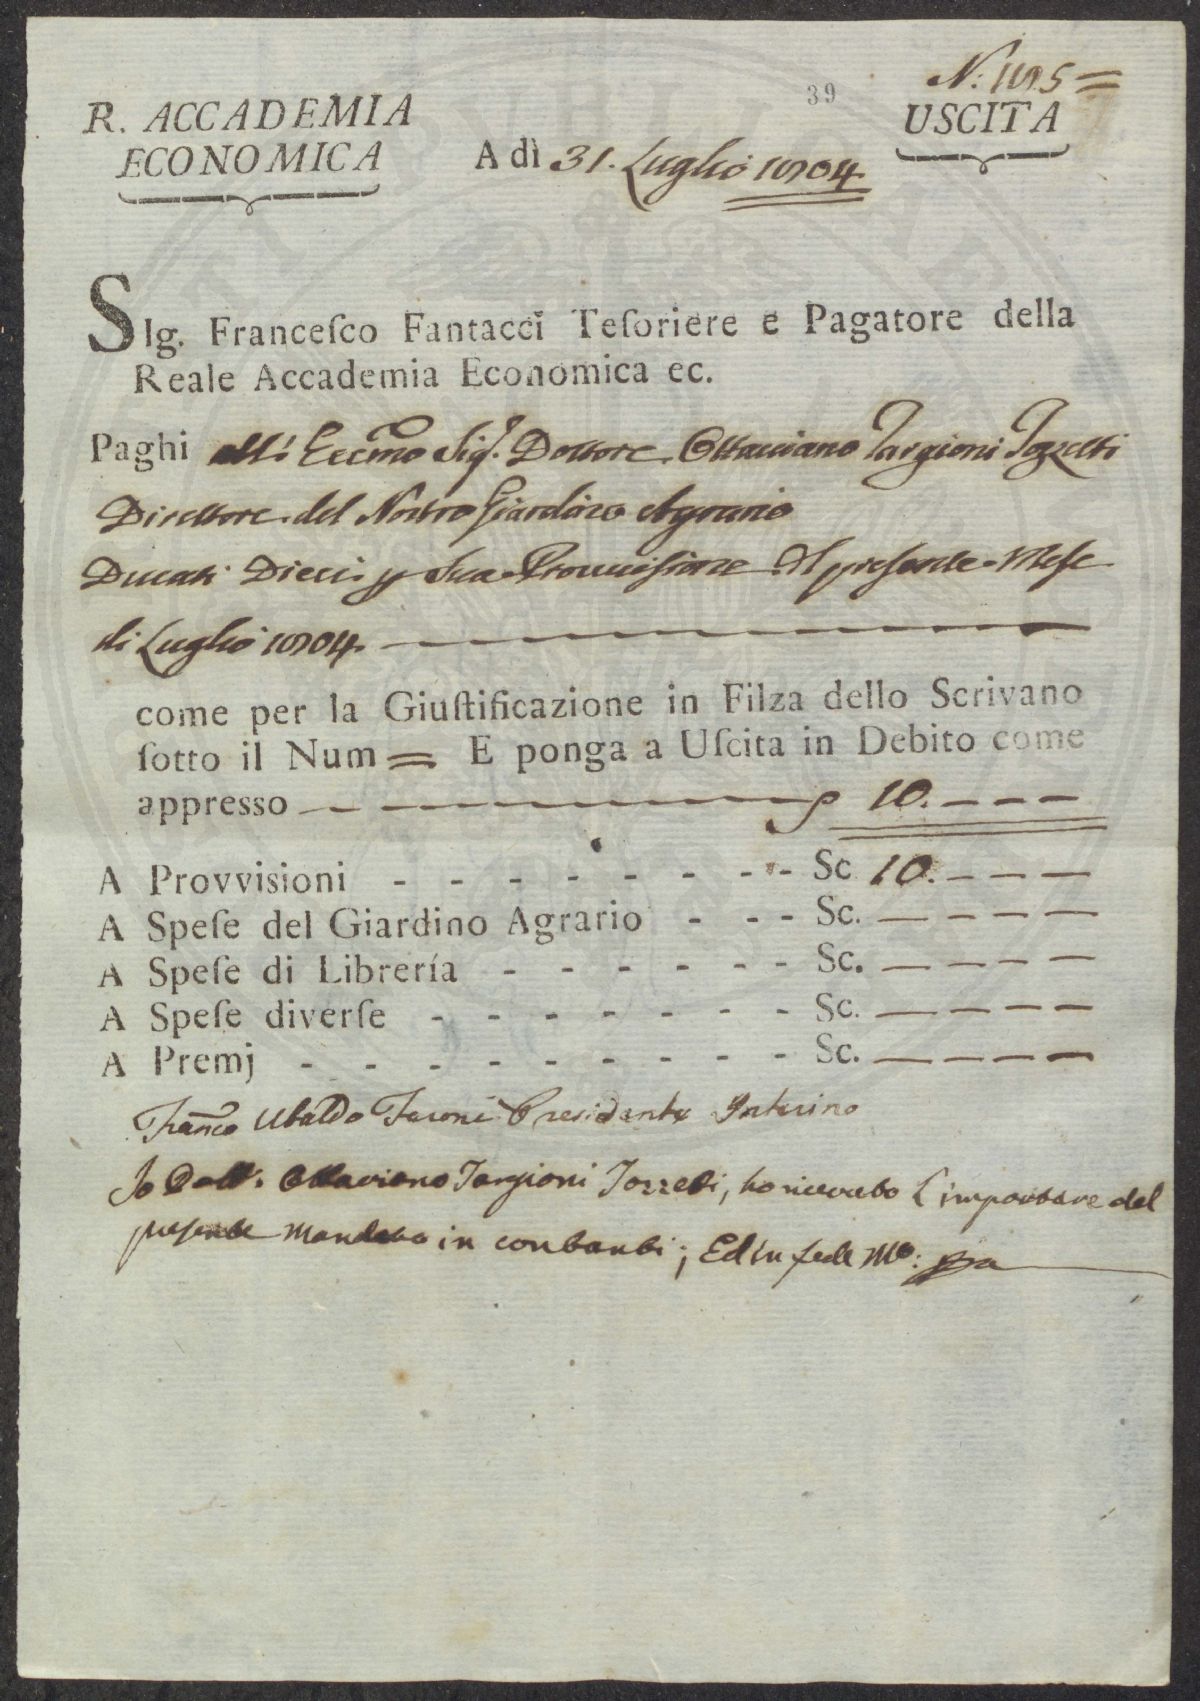 N: 185=
39
R. ACCADEMIA
ECONOMICA
A dì 31. Luglio 1804.
USCITA
SIg. Franceſco Fantacci Teſoriere e Pagatore della
Reale Accademia Economica ec.
Paghi all' Eccmo Sig.r Dottore Ottaviano Targioni Tozzetti
Direttore del Nostro Giardino Agrario
Ducati Dieci p sua Provvisione del presente Mese
di Luglio 1804.
come per la Giuſtificazione in Filza dello Scrivano
ſotto il Num = E ponga a Uſcita in Debito come
appresso 10. – – –
A Provvisioni - - - - - - - - Sc 10. – – –
A Speſe del Giardino Agrario - - - Sc. – – – –
A Speſe di Librería - - - - - - Sc. – – – –
A Speſe diverſe - - - - - - - Sc. – – – –
A Premj - - - - - - - - - Sc. – – – –
Franco Ubaldo Feroni Presidente Interino
Io Dott. Ottaviano Targioni Tozzetti, ho ricevuto l'importare del
presente Mandato in contanti; Ed in fede Mo: ppa